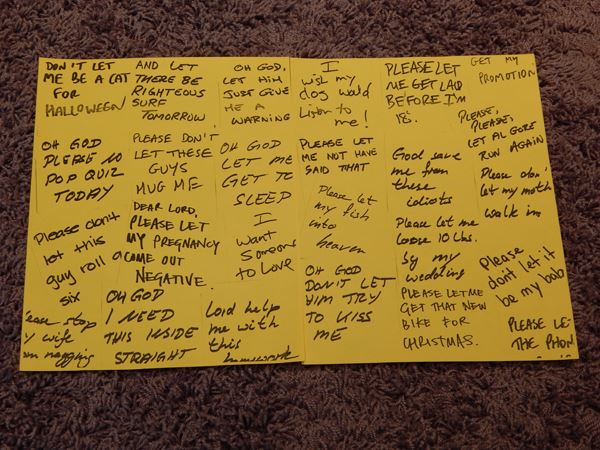 DON'T LET
ME BE A CAT
FOR
HALLOWEEN
OH GOD
PLEASE NO
POP QUIZ
TODAY
Please don't
let this
guy roll a
six
ease stop
y wife
om nagging
AND LET
THERE BE
RIGHTEOUS
SURF
TOMORROW.
PLEASE DON'T
LET THESE
GUYS
MUG ME
DEAR LORD,
PLEASE LET
MY PREGNANCY
COME OUT
NEGATIVE.
OH GOD
I NEED
THIS INSIDE
STRAIGHT
OH GOD,
LET HIM
JUST GIVE
ME A
WARNING
OH GOD
LET ME
GET TO
SLEEP
I
want
someone
to love
Lord help
me with
this
homework
I
wish my
dog would
listen to
me!
PLEASE LET
ME NOT HAVE
SAID THAT
Please let
my fish
into
heaven
OH GOD
DON'T LET
HIM TRY
TO KISS
ME
PLEASE LET
ME GET LAID
BEFORE I'M
18.
God save
me from
these
idiots
Please let me
loose 10 lbs.
by my
wedding
PLEASE LET ME
GET THAT NEW
BIKE FOR
CHRISTMAS.
GET MY
PROMOTION
PLEASE,
PLEASE,
LET AL GORE
RUN AGAIN
Please don'
let my moth
walk in
Please
don't let it
be my bab
PLEASE LE
THE PHON